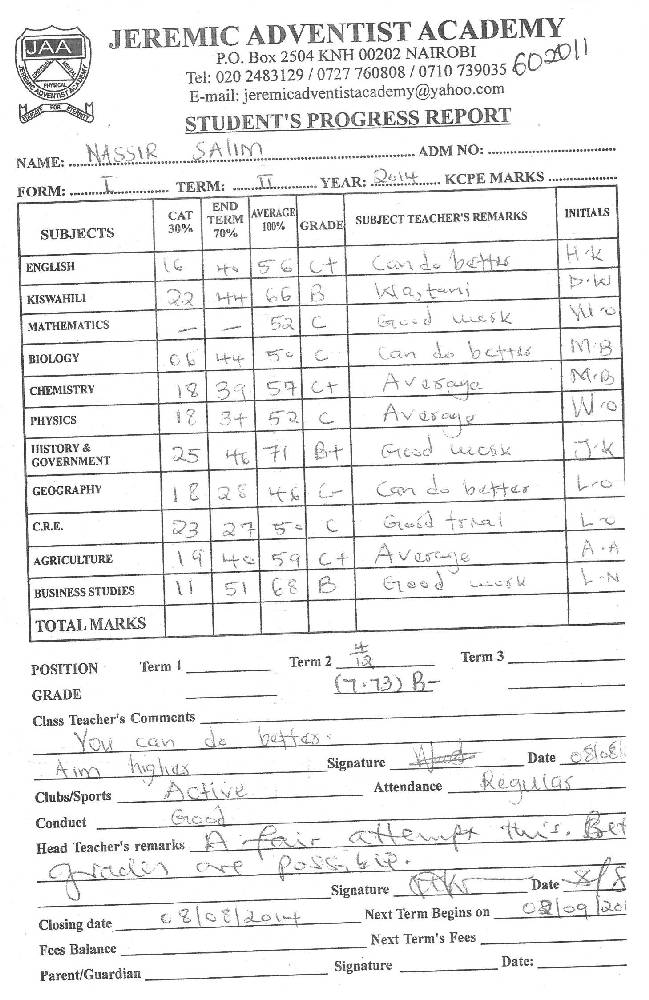 JAA
PHYSICAL
JEREMIC ADVENTIST ACADEMY
JEREMIC ADVENTIST ACADEMY
P.O. Box 2504 KNH 00202 NAIROBI
Tel: 020 2483129 / 0727 760808 / 0710 739035
602011
E-mail: jeremicadventistacademy@yahoo.com
STUDENT'S PROGRESS REPORT
NAME: NASSIR SALIM ADM NO:
FORM: I TERM: II YEAR: 2014 KCPE MARKS
SUBJECTS CAT 30% END TERM 70% AVERAGE 100% GRADE SUBJECT TEACHER'S REMARKS INITIALS
ENGLISH 16 40 56 C+ Can do better H.K
KISWAHILI 22 44 66 B Wastani D.W
MATHEMATICS — — 52 C Good work W.O
BIOLOGY 06 44 50 C Can do better M.B
CHEMISTRY 18 39 57 C+ Average M.B
PHYSICS 18 34 52 C Average W.O
HISTORY & GOVERNMENT 25 46 71 B+ Good work J.K
GEOGRAPHY 18 28 46 C- Can do better L.O
C.R.E. 23 27 50 C Good trial L.O
AGRICULTURE 19 40 59 C+ Average A.A
BUSINESS STUDIES 11 51 68 B Good work L.N
TOTAL MARKS
POSITION Term 1 Term 2 4/12 Term 3
GRADE (7.73) B-
Class Teacher's Comments
You can do better.
Aim higher Signature Date 08/08/
Clubs/Sports Active Attendance Regular
Conduct Good
Head Teacher's remarks A fair attempt this. Bet
grades are possible.
Signature Date 8/8
Closing date 08/08/2014 Next Term Begins on 02/09/201
Fees Balance Next Term's Fees
Parent/Guardian Signature Date: